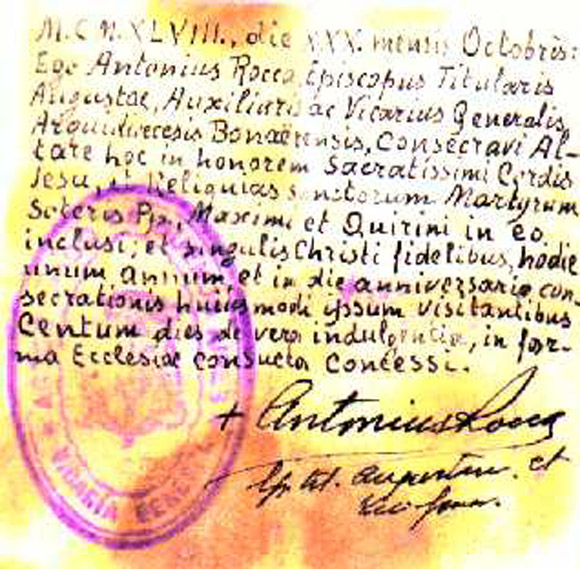 M.C M.XLVIII., die XXX. mensis Octobris:
Ego Antonius Rocca, Episcopus Titularis
Augustae, Auxiliaris ac Vicarius Generalis
Arquidioecesis Bonaërensis, Consecravi Al-
tare hoc in honorem Sacratissimi Cordis
Iesu, et Reliquias sanctorum Martyrum
Soteris Pp., Maximi et Quirini in eo
inclusi; et singulis Christi fidelibus, hodie
unum annum, et in die anniversario con-
secrationis huiusmodi ipsum visitantibus
Centum dies de vera indulgentia, in for-
ma Ecclesiae consueta concessi.
+ Antonius Rocca
Ep. tit. Augusten. et
VICARIA GENERAL